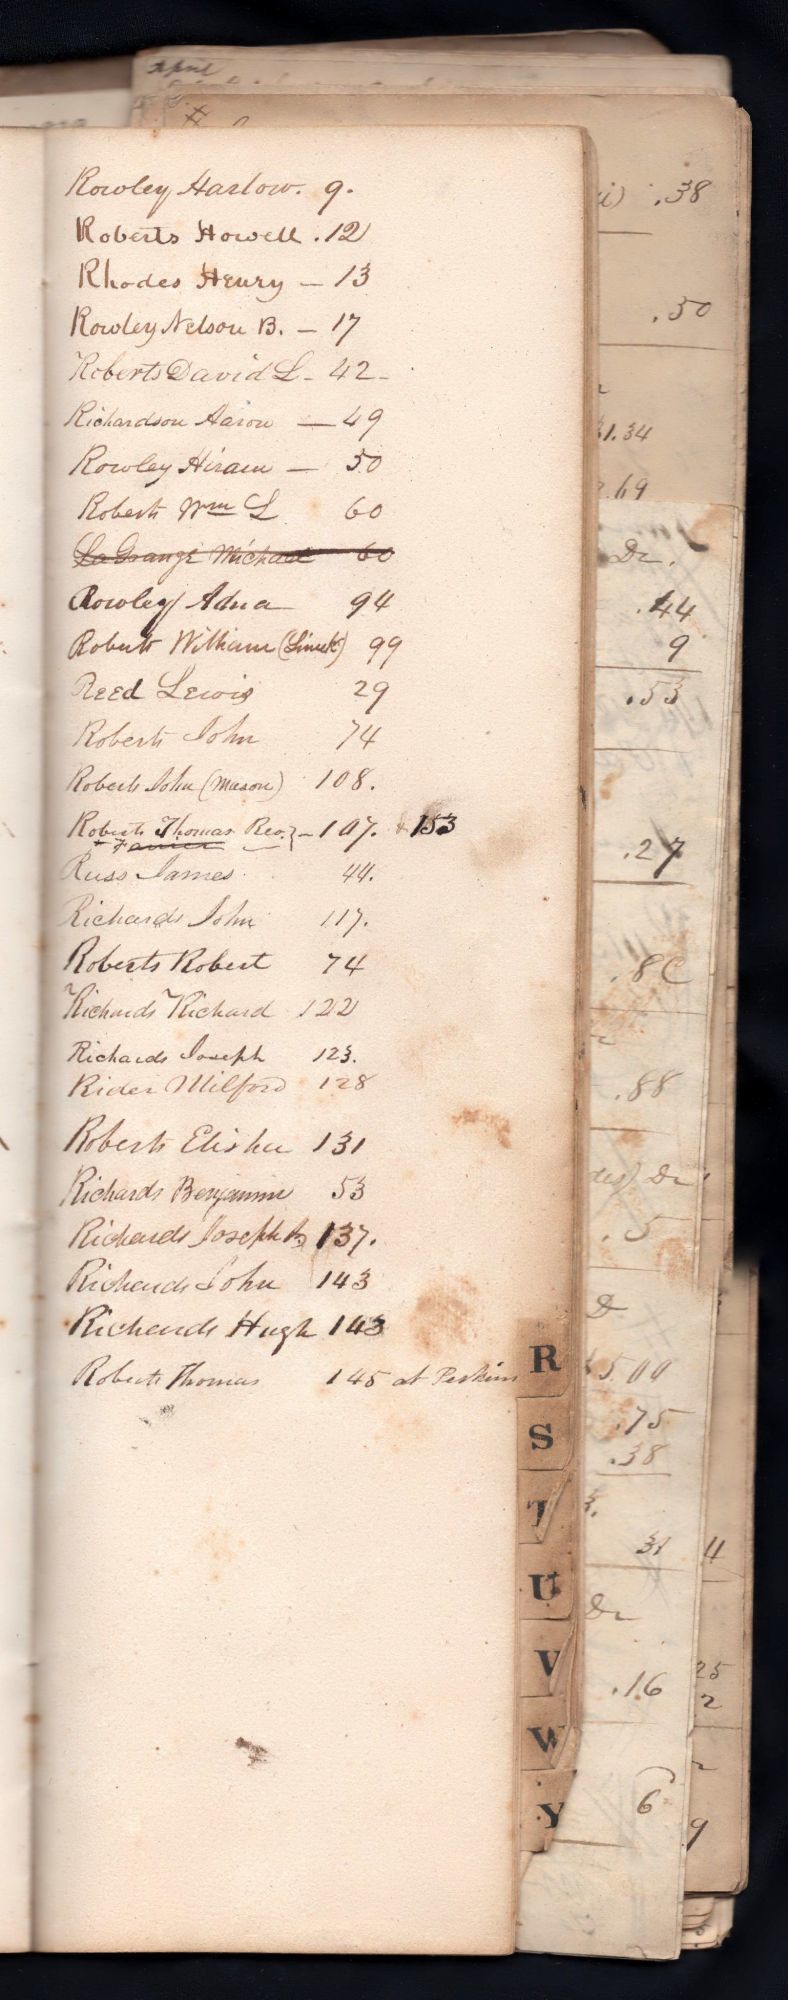 April
Rowley Harlow. 9.
Roberts Howell .12
Rhodes Henry — 13
Rowley Nelson B. — 17
Roberts David L - 42 -
Richardson Aaron — 49
Rowley Hiram — 50
Roberts Wm L 60
LaGrange Michael 60
Rowley Adna 94
Roberts William ( ) 99
Reed Lewis 29
Roberts John 74
Roberts John (Mason) 108.
Roberts Thomas Rev. } - 107. & 153
+ Farmer
Russ James 44.
Richards John 117.
Roberts Robert 74
Richards Richard 122
Richards Joseph 123.
Rider Milford 128
Roberts Elisha 131
Richards Benjamin 53
Richards Joseph B 137.
Richards John 143
Richards Hugh 143
Roberts Thomas 145 at Perkins
R
S
T
U
V
W
Y
.38
.50
1.34
.69
Dr.
.44
9
.53
.27
.88
Dr
.5
5.00
.75
.38
31
4
Dr
25
.16
2
6
9